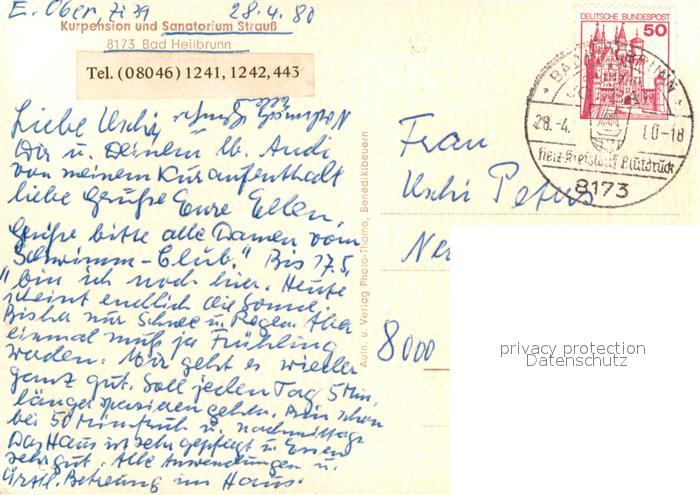 E. Ober, Zi 39 28.4.80
Kurpension und Sanatorium Strauß
8173 Bad Heilbrunn
Tel. (08046) 1241, 1242, 443
Liebe Uschi,
Dir u. Deinem lb. Andi
von meinem Kuraufenthalt
liebe Grüße Eure Ellen.
Grüße bitte alle Damen vom
"Schwimm-Club." Bis 17.5.
bin ich noch hier. Heute
scheint endlich die Sonne.
Bisher nur Schnee u. Regen. Aber
einmal muß ja Frühling
werden. Mir geht es wieder
ganz gut. Soll jeden Tag 5 Min.
länger spazieren gehen. Bin schon
bei 50 Min früh u. nachmittags
Das Haus ist sehr gepflegt u. Essen
sehr gut. Alle Anwendungen u.
ärztl. Betreuung im Haus.
Aufn. u. Verlag Photo-Thoma, Benediktbeuern
DEUTSCHE BUNDESPOST
50
BAD HEILBRUNN
28.-4. 80-18
Herz-Kreislauf Blutdruck
8173
Frau
Uschi Peters
8000
privacy protection
Datenschutz